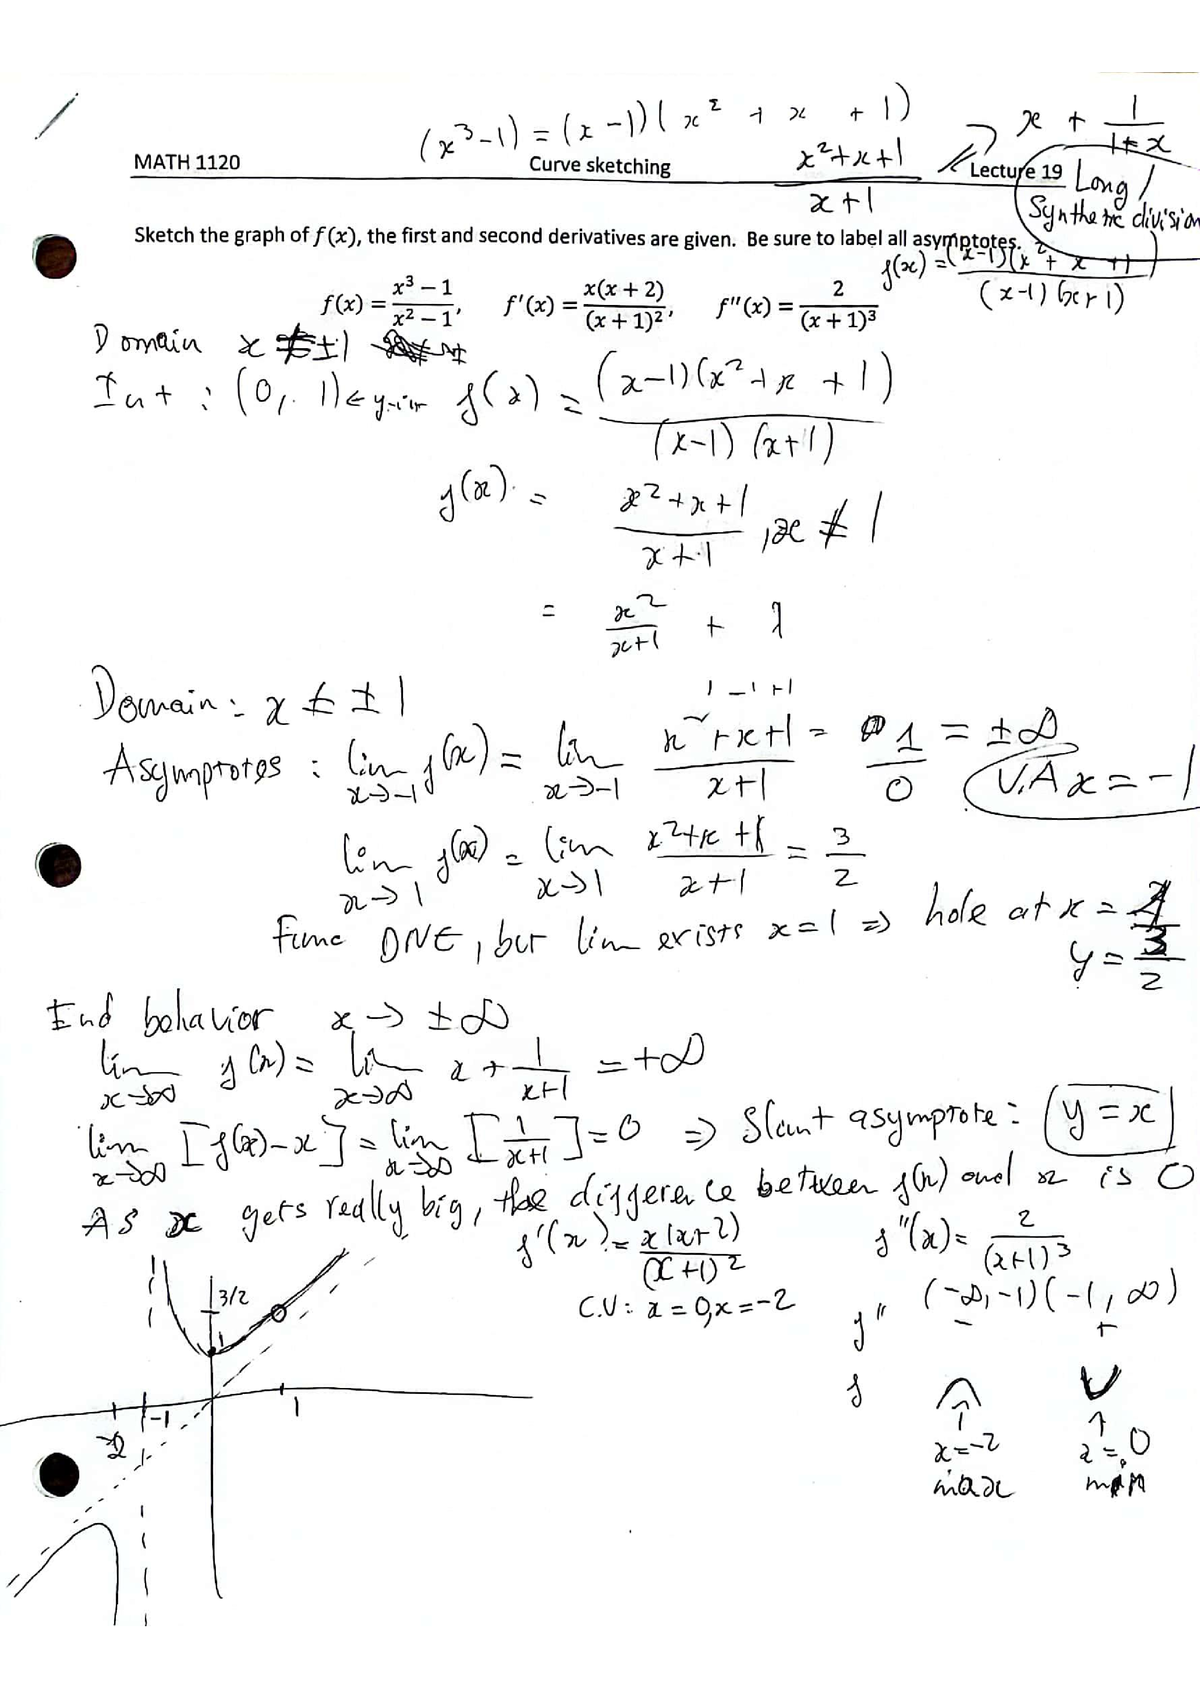 (x³-1) = (x-1)(x² + x + 1)
x + 1/(1+x)
MATH 1120
Curve sketching
(x²+x+1)/(x+1)
Lecture 19
Long /
Synthetic division
Sketch the graph of f(x), the first and second derivatives are given. Be sure to label all asymptotes.
f(x) = (x-1)(x²+x+1)/((x-1)(x+1))
f(x) = (x³ − 1)/(x² − 1), f'(x) = x(x + 2)/(x + 1)², f''(x) = 2/(x + 1)³
Domain x ≠ ±1
Int : (0, 1) ← y-int f(x) = (x-1)(x²+x+1)/((x-1)(x+1))
f(x) = (x²+x+1)/(x+1), x ≠ 1
= x²/(x+1) + 1
Domain: x ≠ ±1
1-1+1
Asymptotes : lim x→-1 f(x) = lim x→-1 (x²+x+1)/(x+1) = 1/0 = ±∞
V.A x=-1
lim x→1 f(x) = lim x→1 (x²+x+1)/(x+1) = 3/2
Func DNE, but lim exists x=1 ⇒ hole at x = 1
y = 3/2
End behavior x → ±∞
lim x→∞ f(x) = lim x→∞ x + 1/(x+1) = +∞
lim x→∞ [f(x)-x] = lim x→∞ [1/(x+1)] = 0 ⇒ Slant asymptote: y = x
As x gets really big, the difference between f(x) and x is 0
f'(x) = x(x+2)/(x+1)²
f''(x) = 2/(x+1)³
C.V: x = 0, x = -2
(-∞,-1)(-1, ∞)
f'' - +
f
x=-2
max
x=0
min
3/2
1
-1
1
-2